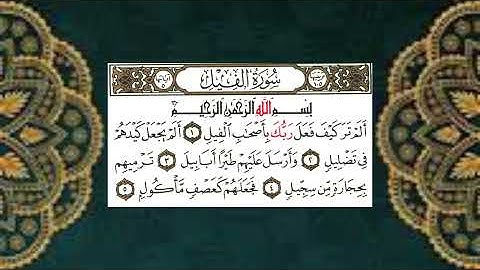 سُورَةُ الفِيلِ
بِسْمِ اللَّهِ الرَّحْمَٰنِ الرَّحِيمِ
أَلَمْ تَرَ كَيْفَ فَعَلَ رَبُّكَ بِأَصْحَابِ الْفِيلِ ١ أَلَمْ يَجْعَلْ كَيْدَهُمْ
فِي تَضْلِيلٍ ٢ وَأَرْسَلَ عَلَيْهِمْ طَيْرًا أَبَابِيلَ ٣ تَرْمِيهِم
بِحِجَارَةٍ مِّن سِجِّيلٍ ٤ فَجَعَلَهُمْ كَعَصْفٍ مَّأْكُولٍ ٥